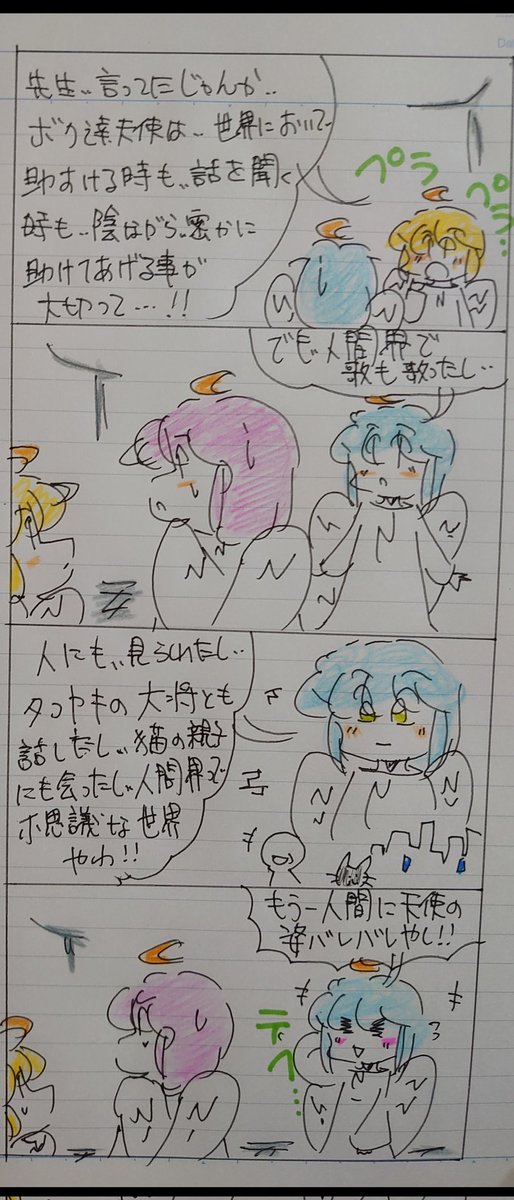 先生‥言ってたじゃんか‥
ボク達天使は‥世界において‥
助すける時も‥話を聞く
時も‥陰ながら‥密かに
助けてあげる事が
大切って…!!
ペラ
ペラ…
でも‥人間界で
歌も歌ったし‥
人にも‥見られたし‥
タコヤキの大将とも
話したし‥猫の親子
にも会ったし‥人間界って
不思議な世界
やわ!!
もう一人間に天使の
姿バレバレやし!!
テヘ…